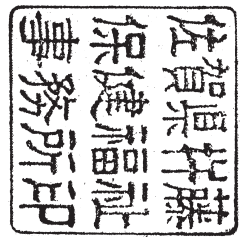 佐賀県杵藤
保健福祉
事務所印